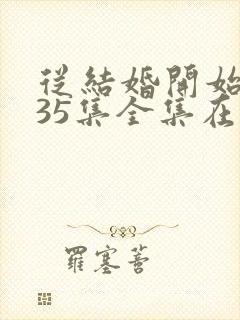 從結婚開始
35集全集在
羅塞菩